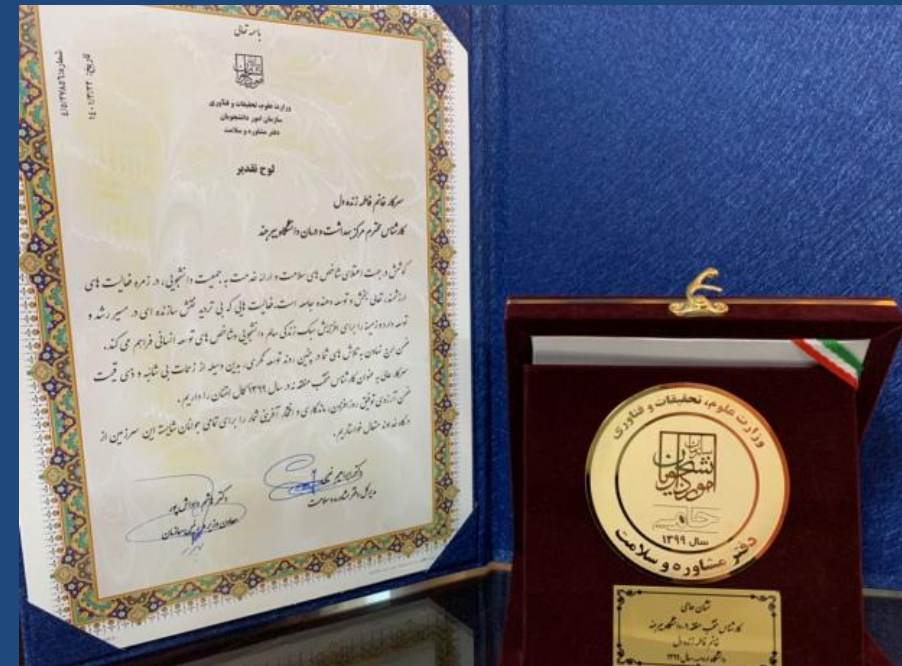 باسمه تعالی
شماره: ۴/۵/۲۷۸۵۶
تاریخ: ۱۴۰۱/۳/۲۲
سازمان امور دانشجویان
وزارت علوم، تحقیقات و فناوری
سازمان امور دانشجویان
دفتر مشاوره و سلامت
لوح تقدیر
سرکار خانم فاطمه زنده دل
کارشناس محترم مرکز بهداشت و درمان دانشگاه بیرجند
کوشش در جهت اعتلای شاخص های سلامت و ارائه خدمت به جمعیت دانشجویی، در زمره فعالیت های
ارزشمند، تعالی بخش و توسعه دهنده جامعه است. فعالیت هایی که بی تردید نقش سازنده ای در مسیر رشد و
توسعه دارد و زمینه را برای افزایش سبک زندگی سالم دانشجویی و شاخص های توسعه انسانی فراهم می کند.
ضمن ارج نهادن به تلاش های شما در چنین روند توسعه نگری، بدین وسیله از زحمات بی شائبه و ذی قیمت
سرکار عالی به عنوان کارشناس منتخب منطقه ۹ در سال ۱۳۹۹ کمال امتنان را داریم.
ضمن آرزوی توفیق روزافزون، ماندگاری و افتخار آفرینی شما را برای تمامی جوانان شایسته این سرزمین از
درگاه خداوند متعال خواستاریم.
دکتر ابراهیم
مدیرکل دفتر مشاوره و سلامت
دکتر هاشم داداش پور
معاون وزیر و رئیس سازمان
وزارت علوم، تحقیقات و فناوری
سازمان امور دانشجویان
حامی
سال ۱۳۹۹
دفتر مشاوره و سلامت
نشان حامی
کارشناس منتخب منطقه ۹، دانشگاه بیرجند
خانم فاطمه زنده دل
سال ۱۳۹۹